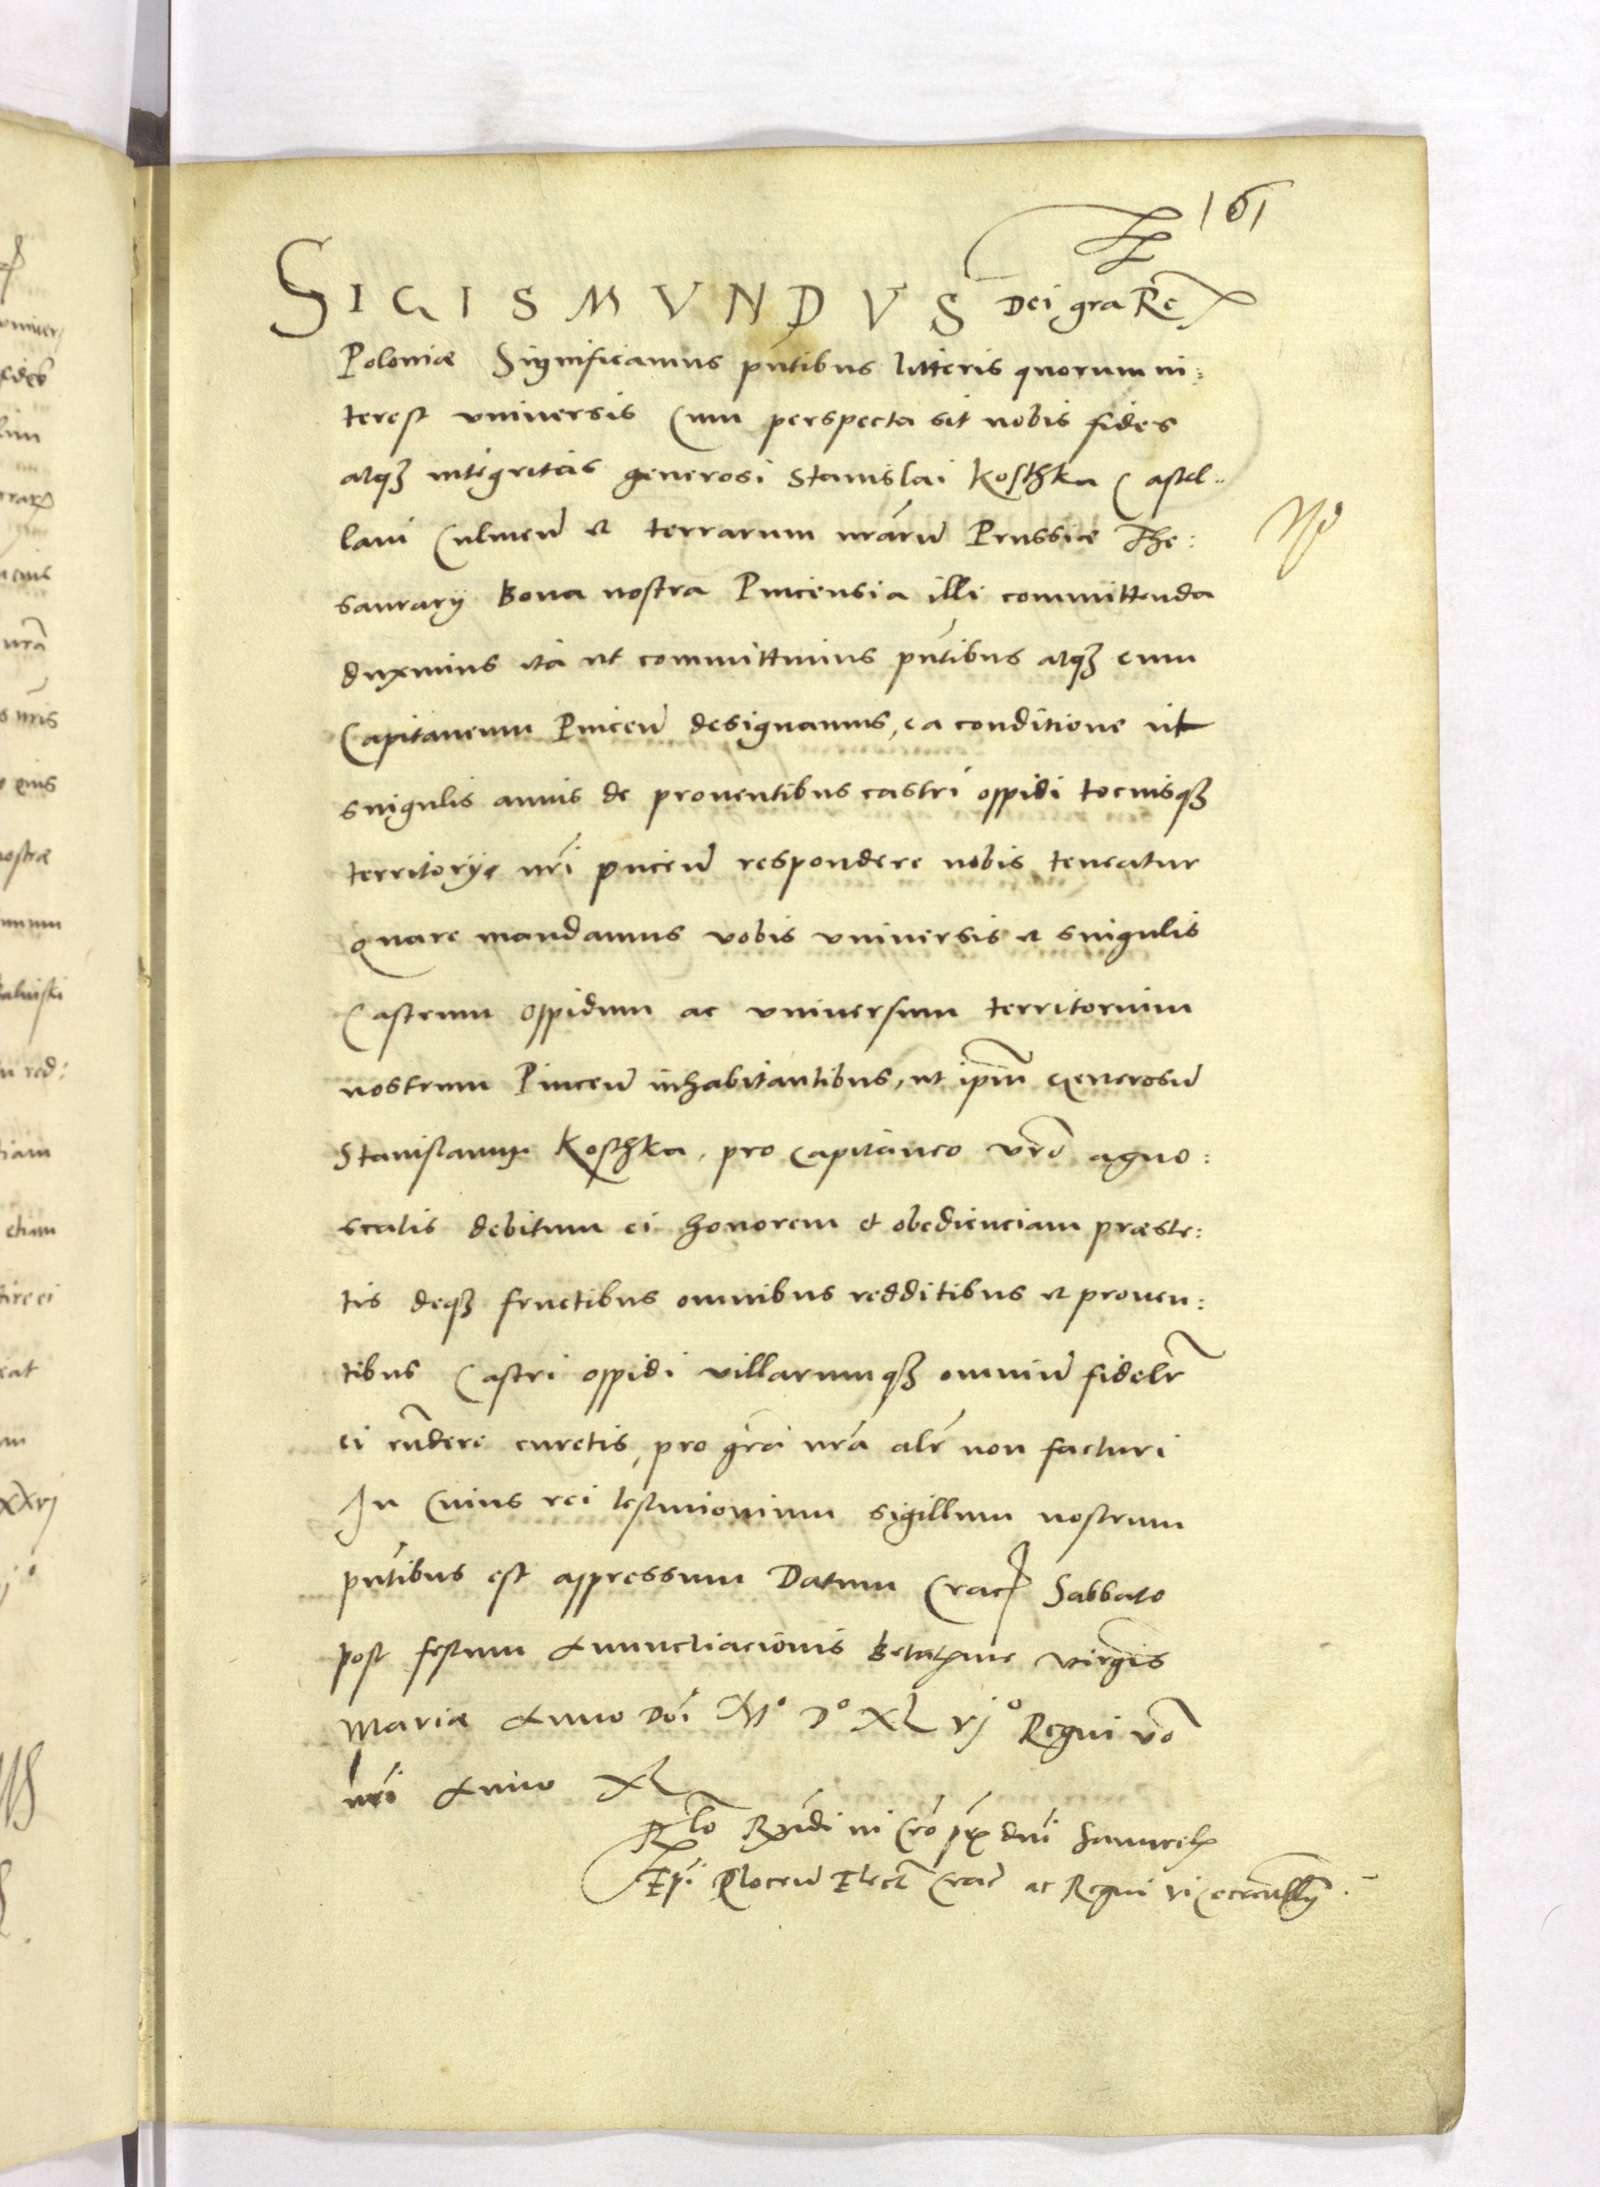 161
SIGISMVNDVS Dei gra Rex
Poloniæ Significamus pñtibus litteris quorum in:
terest vniversis Cum perspecta sit nobis fides
atqȝ integritas generosi Stanislai Kosthka Castel-
lani Culmeñ et terrarum nrãrũ Prussiæ The:
saurarij Bona nostra Pucensia illi committenda
duximus ita ut committimus pñtibus atqȝ eum
Capitaneum Puceñ designamus, ea conditione ut
singulis annis de proventibus castri oppidi tociusqȝ
territorije nrĩ puceñ respondere nobis teneatur
Quare mandamus vobis vniversis et singulis
Castrum Oppidum ac vniversum territorium
nostrum Puceñ inhabitantibus, ut ipm̃ Generosũ
Stanislaum Kosthka, pro Capitaneo vrõ agno:
scatis debitum ei honorem et obedienciam præste:
tis deqȝ fructibus omnibus redditibus et proven:
tibus Castri oppidi villarumqȝ omniũ fidelr̃
ei rñdere curetis, pro grã nrã alr̃ non facturi
In Cuius rei testimonium sigillum nostrum
pñtibus est appressum Datum Crac Sabbato
post festum Annunctiacionis Beatæ virgis
Mariæ Anno Doĩ M° D° XL vj° Regni vo
nrĩ Anno XL
Rlo Rndi in Cro prs dni Samuelis
Epi Ploceñ Elect Crac ac Regni vicecancellrij